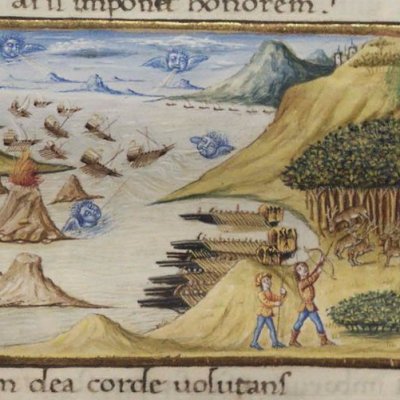 aris imponit honorem.
m dea corde uolutans